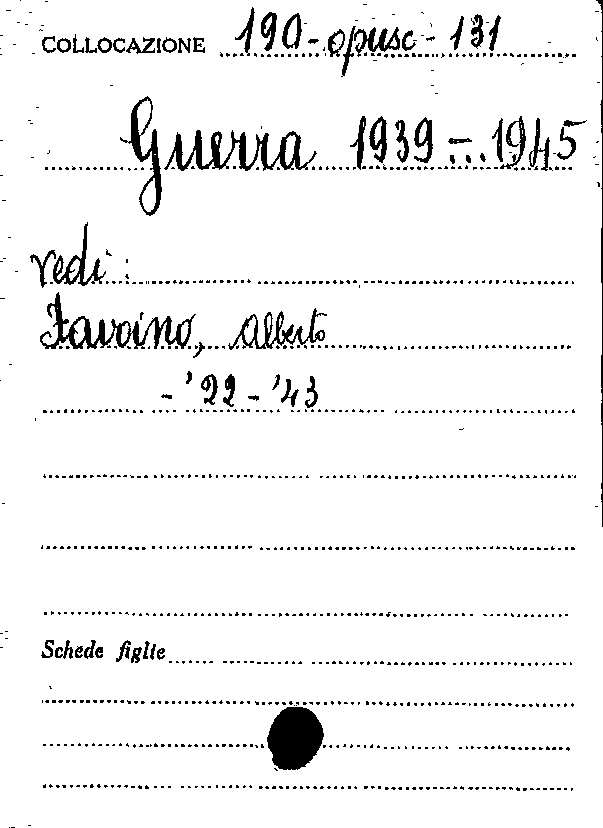 COLLOCAZIONE 190-opusc-131
Guerra 1939-...1945
vedi:
Favoino, Alberto
-'22-'43
Schede figlie